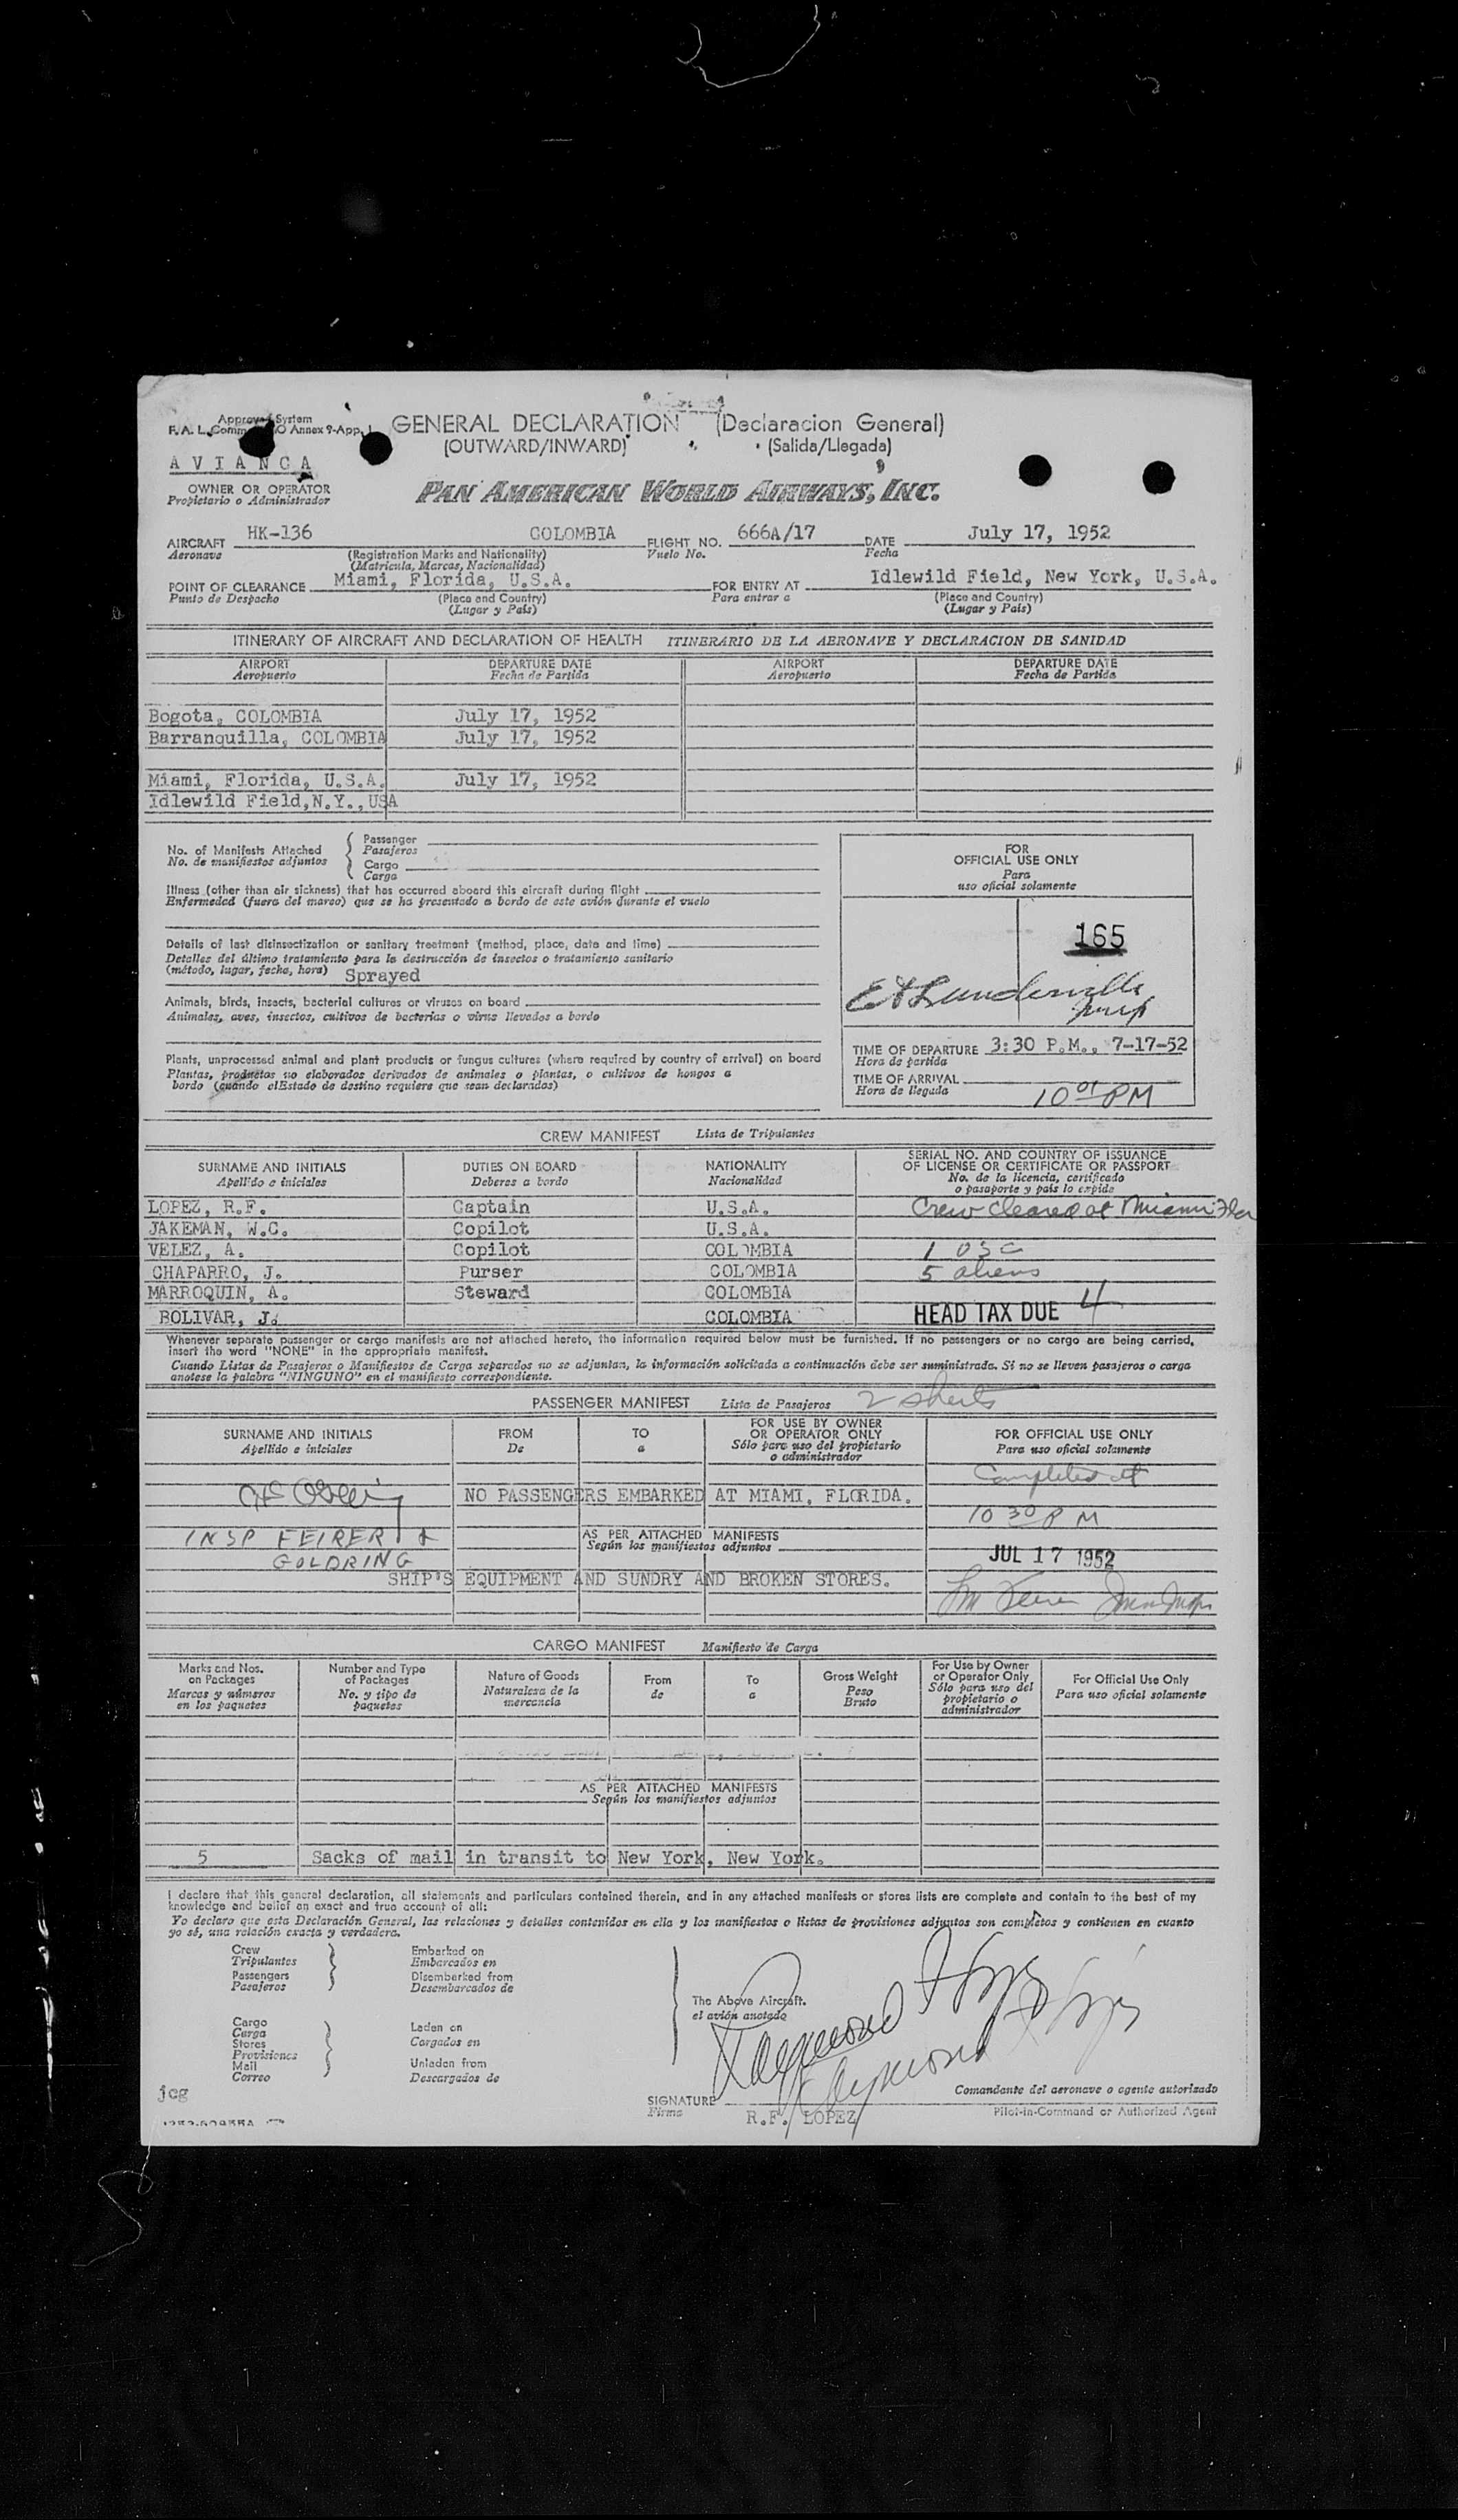 Approved System
F. A. L. Comm. O Annex 9-App. I
GENERAL DECLARATION (Declaracion General)
(OUTWARD/INWARD) (Salida/Llegada)
AVIANCA
OWNER OR OPERATOR
Propietario o Administrador
PAN AMERICAN WORLD AIRWAYS, INC.
AIRCRAFT HK-136 COLOMBIA FLIGHT NO. 666A/17 DATE July 17, 1952
Aeronave (Registration Marks and Nationality) Vuelo No. Fecha
(Matricula, Marcas, Nacionalidad)
POINT OF CLEARANCE Miami, Florida, U.S.A. FOR ENTRY AT Idlewild Field, New York, U.S.A.
Punto de Despacho (Place and Country) Para entrar a (Place and Country)
(Lugar y País) (Lugar y País)
ITINERARY OF AIRCRAFT AND DECLARATION OF HEALTH ITINERARIO DE LA AERONAVE Y DECLARACION DE SANIDAD
AIRPORT DEPARTURE DATE AIRPORT DEPARTURE DATE
Aeropuerto Fecha de Partida Aeropuerto Fecha de Partida
Bogota, COLOMBIA July 17, 1952
Barranquilla, COLOMBIA July 17, 1952
Miami, Florida, U.S.A. July 17, 1952
Idlewild Field, N.Y., USA
No. of Manifests Attached
No. de manifiestos adjuntos
Passenger
Pasajeros
Cargo
Carga
Illness (other than air sickness) that has occurred aboard this aircraft during flight
Enfermedad (fuera del mareo) que se ha presentado a bordo de este avión durante el vuelo
Details of last disinsectization or sanitary treatment (method, place, date and time)
Detalles del último tratamiento para la destrucción de insectos o tratamiento sanitario
(método, lugar, fecha, hora) Sprayed
Animals, birds, insects, bacterial cultures or viruses on board
Animales, aves, insectos, cultivos de bacterias o virus llevados a bordo
Plants, unprocessed animal and plant products or fungus cultures (where required by country of arrival) on board
Plantas, productos no elaborados derivados de animales o plantas, o cultivos de hongos a
bordo (cuando elEstado de destino requiere que sean declarados)
FOR
OFFICIAL USE ONLY
Para
uso oficial solamente
165
TIME OF DEPARTURE 3:30 P.M., 7-17-52
Hora de partida
TIME OF ARRIVAL
Hora de llegada 10 01 PM
CREW MANIFEST Lista de Tripulantes
SURNAME AND INITIALS DUTIES ON BOARD NATIONALITY SERIAL NO. AND COUNTRY OF ISSUANCE
OF LICENSE OR CERTIFICATE OR PASSPORT
Apellido e iniciales Deberes a bordo Nacionalidad No. de la licencia, certificado
o pasaporte y país lo expide
LOPEZ, R.F. Captain U.S.A. Crew cleared at Miami Fla
JAKEMAN, W.C. Copilot U.S.A.
VELEZ, A. Copilot COLOMBIA 1 USC
CHAPARRO, J. Purser COLOMBIA 5 aliens
MARROQUIN, A. Steward COLOMBIA
BOLIVAR, J. COLOMBIA HEAD TAX DUE 4
Whenever separate passenger or cargo manifests are not attached hereto, the information required below must be furnished. If no passengers or no cargo are being carried,
insert the word "NONE" in the appropriate manifest.
Cuando Listas de Pasajeros o Manifiestos de Carga separados no se adjuntan, la información solicitada a continuación debe ser suministrada. Si no se lleven pasajeros o carga
anotese la palabra "NINGUNO" en el manifiesto correspondiente.
PASSENGER MANIFEST Lista de Pasajeros 2 sheets
SURNAME AND INITIALS FROM TO FOR USE BY OWNER
OR OPERATOR ONLY FOR OFFICIAL USE ONLY
Apellido e iniciales De a Sólo para uso del propietario
o administrador Para uso oficial solamente
Completed at
NO PASSENGERS EMBARKED AT MIAMI, FLORIDA.
10 30 P M
INSP FEIRER &
AS PER ATTACHED MANIFESTS
Según los manifiestos adjuntos
GOLDRING JUL 17 1952
SHIP'S EQUIPMENT AND SUNDRY AND BROKEN STORES.
CARGO MANIFEST Manifiesto de Carga
Marks and Nos.
on Packages
Marcas y números
en los paquetes
Number and Type
of Packages
No. y tipo de
paquetes
Nature of Goods
Naturalesa de la
mercancia
From
de
To
a
Gross Weight
Peso
Bruto
For Use by Owner
or Operator Only
Sólo para uso del
propietario o
administrador
For Official Use Only
Para uso oficial solamente
AS PER ATTACHED MANIFESTS
Según los manifiestos adjuntos
5 Sacks of mail in transit to New York, New York.
I declare that this general declaration, all statements and particulars contained therein, and in any attached manifests or stores lists are complete and contain to the best of my
knowledge and belief an exact and true account of all:
Yo declaro que esta Declaración General, las relaciones y detalles contenidos en ella y los manifiestos o listas de provisiones adjuntos son completos y contienen en cuanto
yo sé, una relación exacta y verdadera.
Crew
Tripulantes
Passengers
Pasajeros
Embarked on
Embarcados en
Disembarked from
Desembarcados de
Cargo
Carga
Stores
Provisiones
Mail
Correo
Laden on
Cargados en
Unladen from
Descargados de
The Above Aircraft.
el avión anotado
jcg
SIGNATURE
Firma
R.F. LOPEZ
Comandante del aeronave o agente autorizado
Pilot-in-Command or Authorized Agent